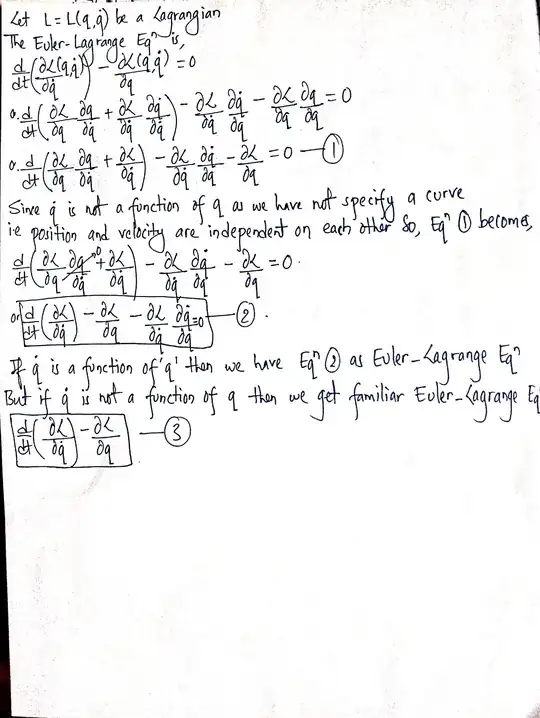 Let L = L(q,q̇) be a Lagrangian
The Euler-Lagrange Eqⁿ is,
d/dt(∂L(q,q̇)/∂q̇) - ∂L(q,q̇)/∂q = 0
o. d/dt(∂L/∂q ∂q/∂q̇ + ∂L/∂q̇ ∂q̇/∂q̇) - ∂L/∂q̇ ∂q̇/∂q - ∂L/∂q ∂q/∂q = 0
o. d/dt(∂L/∂q ∂q/∂q̇ + ∂L/∂q̇) - ∂L/∂q̇ ∂q̇/∂q - ∂L/∂q = 0 — ①
Since q̇ is not a function of q as we have not specify a curve
i.e position and velocity are independent on each other So, Eqⁿ ① becomes,
d/dt(∂L/∂q ∂q/∂q̇ ⁰ + ∂L/∂q̇) - ∂L/∂q̇ ∂q̇/∂q - ∂L/∂q = 0.
or d/dt(∂L/∂q̇) - ∂L/∂q - ∂L/∂q̇ ∂q̇/∂q = 0 — ②.
If q̇ is a function of 'q' then we have Eqⁿ ② as Euler-Lagrange Eqⁿ
But if q̇ is not a function of q then we get familiar Euler-Lagrange Eq
d/dt(∂L/∂q̇) - ∂L/∂q — ③